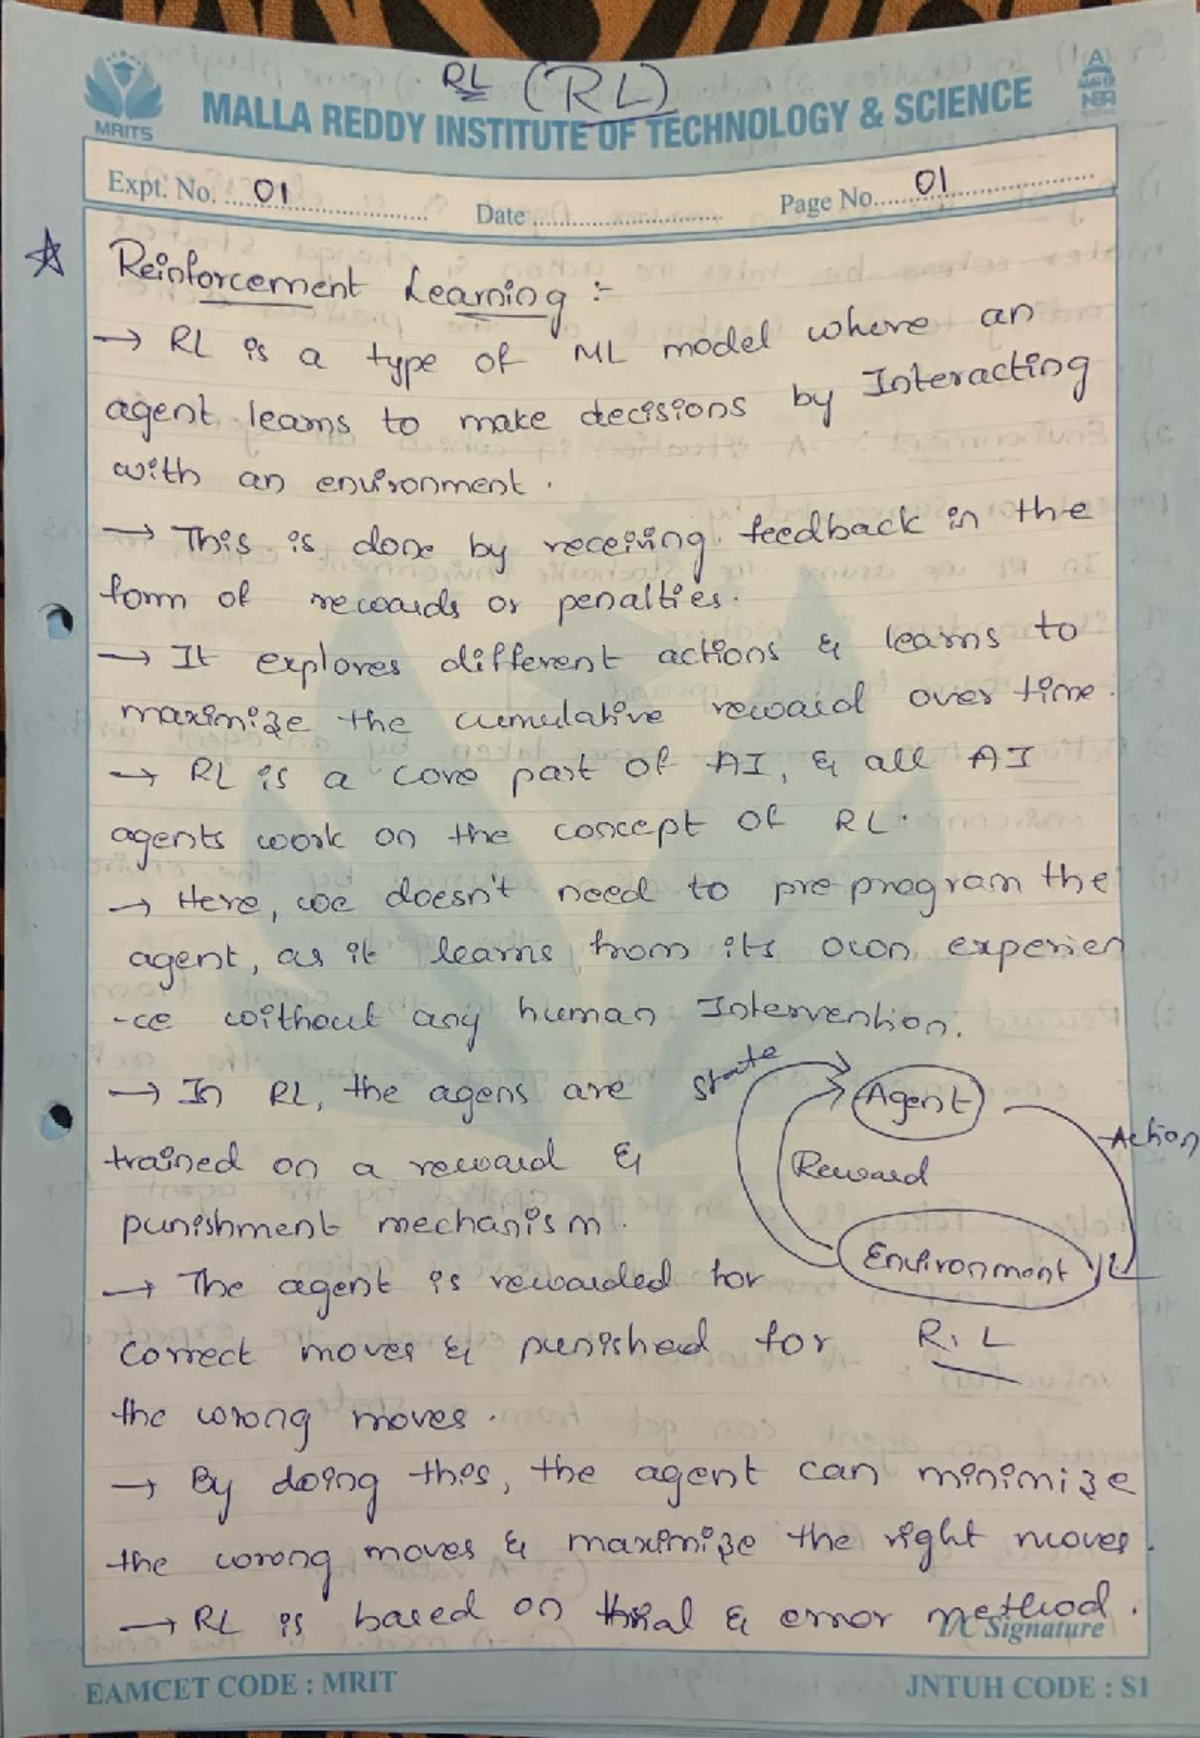 RL (RL)
MRITS
MALLA REDDY INSTITUTE OF TECHNOLOGY & SCIENCE
Expt. No. 01 Date Page No. 01
Reinforcement Learning :-
→ RL is a type of ML model where an
agent learns to make decisions by Interacting
with an environment.
→ This is done by receiving feedback in the
form of rewards or penalties.
→ It explores different actions & learns to
maximize the cumulative reward over time.
→ RL is a core part of AI, & all AI
agents work on the concept of RL.
→ Here, we doesn't need to pre-program the
agent, as it learns from its own experien
-ce without any human Intervention.
→ In RL, the agens are
trained on a reward &
punishment mechanism.
→ The agent is rewarded for
correct moves & punished for
the wrong moves.
state
Agent
Action
Reward
Environment
R.L
→ By doing this, the agent can minimize
the wrong moves & maximize the right moves.
→ RL is based on trial & error method.
I/C Signature
EAMCET CODE : MRIT JNTUH CODE : S1